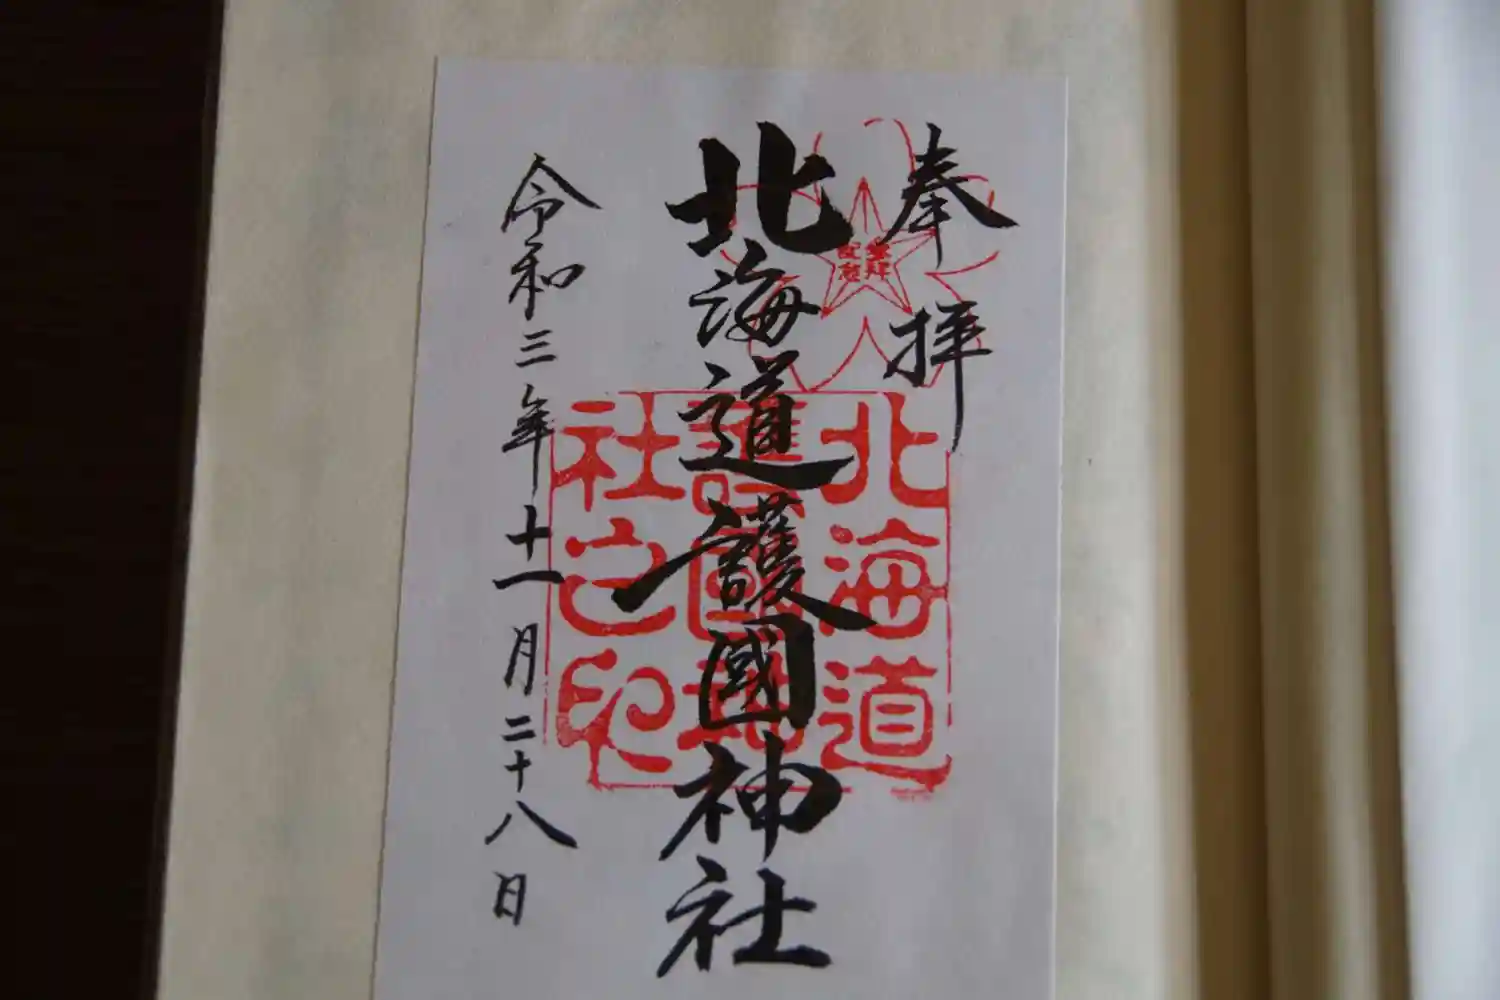 奉拝
登拝
記念
北海道護國神社
北海道
護國神
社之印
令和三年十一月二十八日